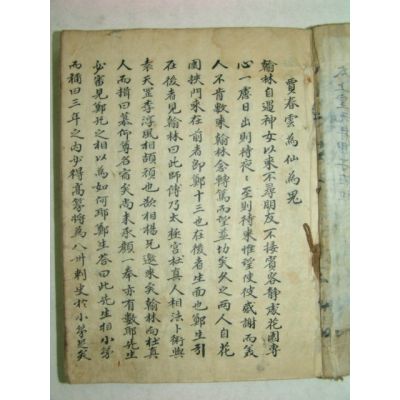 賈春雲為仙為鬼
翰林自遇神女以來不尋朋友不接賓客靜處花園專
心一慮日出則待夜之至則待來惟望使彼感謝而美
人不肯數來翰林念轉篤而望益切矣久之兩人自花
園挾門來在前者即鄭十三也在後者生面也鄭生引
在後者見翰林曰此師傅乃太極宮杜真人相法卜術與
袁天罡李淳風相頡頏也欲相楊兄邀來矣翰林向杜真
人而揖曰慕仰尊名宿矣尚未承顏一奉亦有數耶先生
必審見鄭兄之相以為如何耶鄭生答曰此先生相小弟
而稱曰三年之內必得高第將為八州刺史於小弟足矣